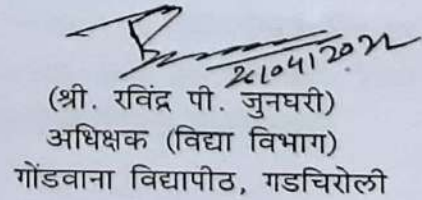 (श्री. रविंद्र पी. जुनघरी)
अधिक्षक (विद्या विभाग)
गोंडवाना विद्यापीठ, गडचिरोली